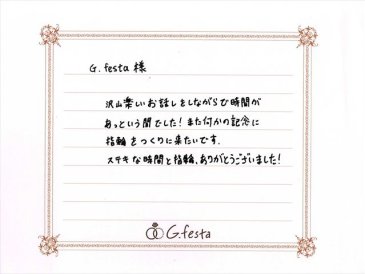 G.festa 様
沢山楽しいお話しをしながらで時間が
あっという間でした！また何かの記念に
指輪をつくりに来たいです.
ステキな時間と指輪、ありがとうございました！
G.festa